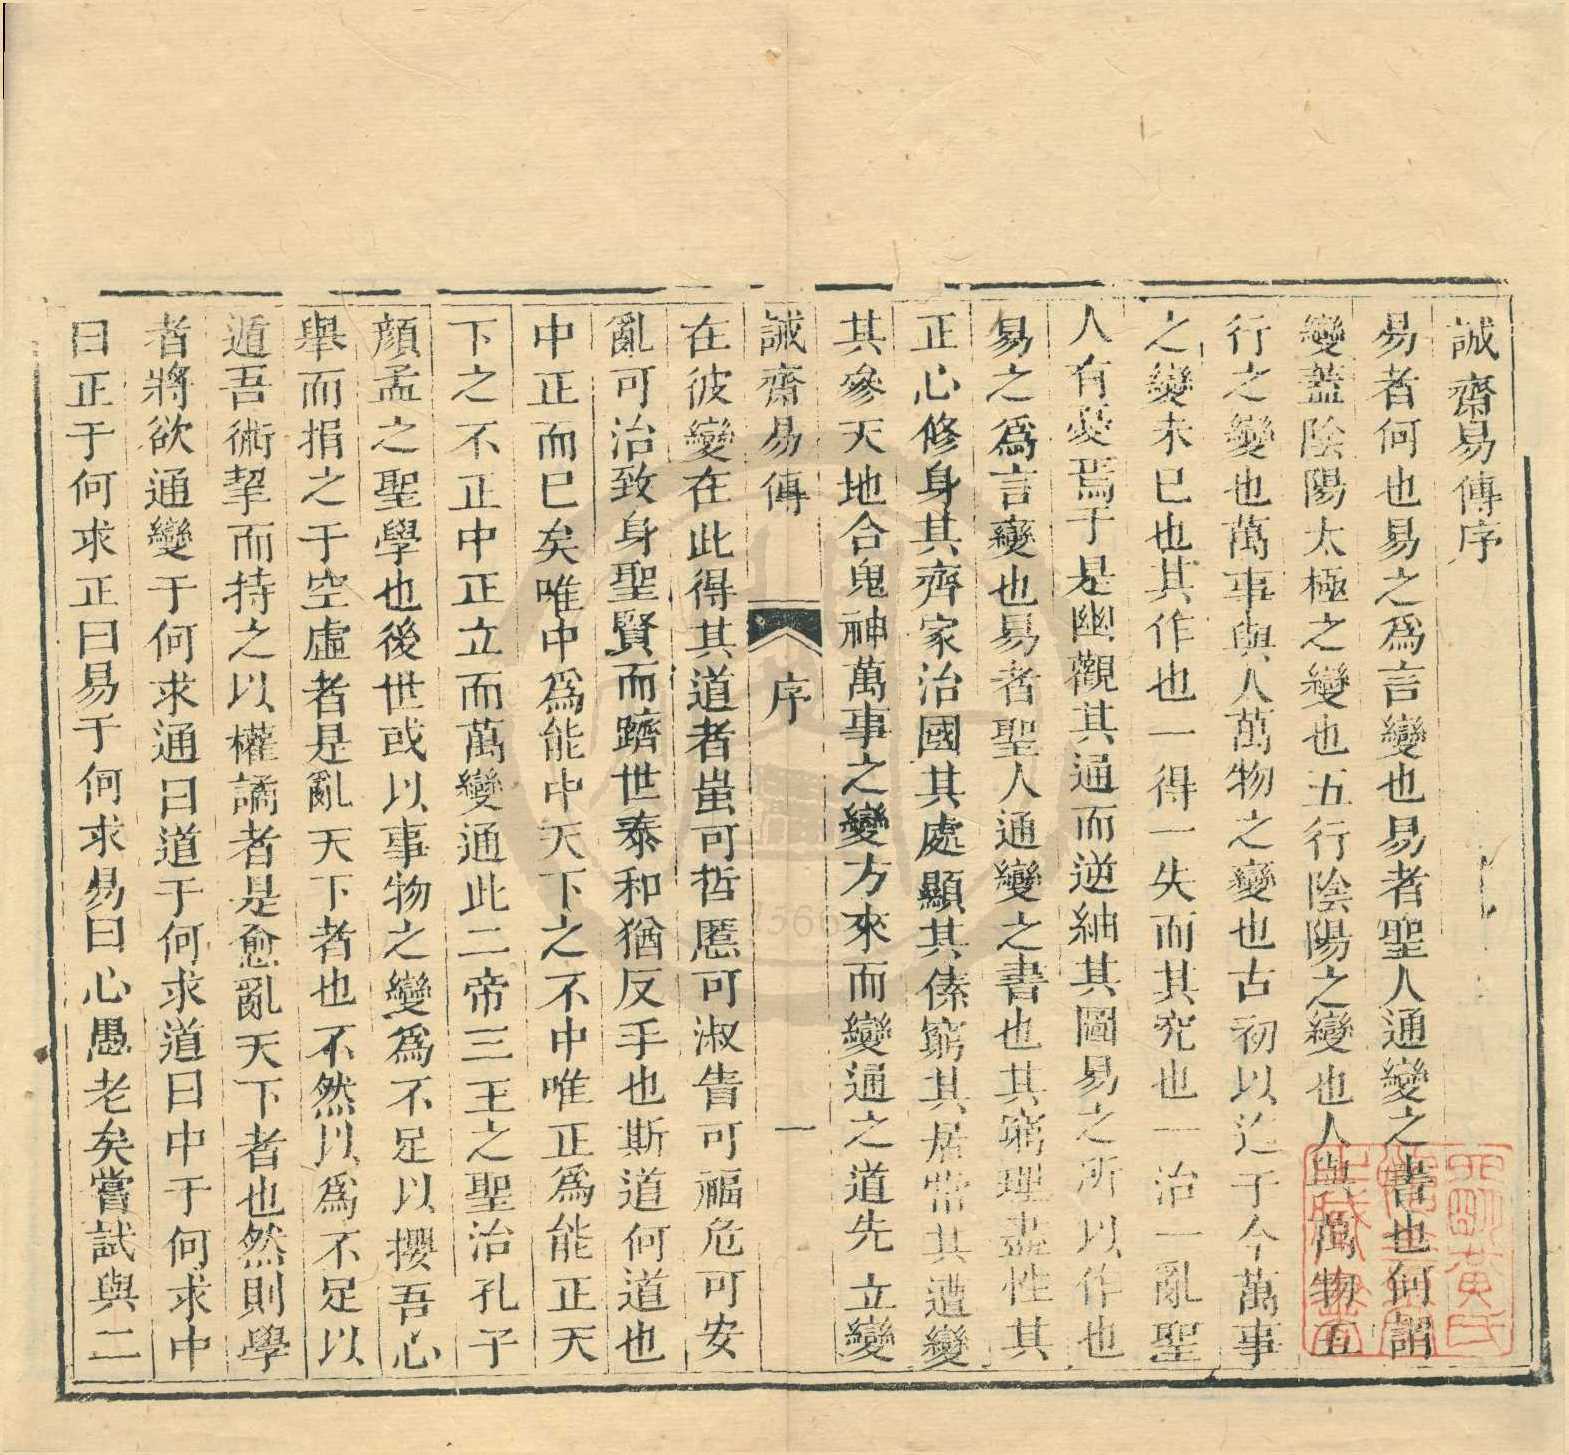 誠齋易傳序
易者何也易之爲言變也易者聖人通變之書也何謂
變蓋陰陽太極之變也五行陰陽之變也人與萬物五
行之變也萬事與人萬物之變也古初以迄于今萬事
之變未已也其作也一得一失而其究也一治一亂聖
人有憂焉于是幽觀其通而逆紬其圖易之所以作也
易之爲言變也易者聖人通變之書也其窮理盡性其
正心修身其齊家治國其處顯其傃窮其居常其遭變
其參天地合鬼神萬事之變方來而變通之道先立變
誠齋易傳
序
一
在彼變在此得其道者蚩可哲慝可淑眚可福危可安
亂可治致身聖賢而躋世泰和猶反手也斯道何道也
中正而巳矣唯中爲能中天下之不中唯正爲能正天
下之不正中正立而萬變通此二帝三王之聖治孔子
顏孟之聖學也後世或以事物之變爲不足以攖吾心
舉而捐之于空虛者是亂天下者也不然以爲不足以
遁吾術挈而持之以權譎者是愈亂天下者也然則學
者將欲通變于何求通曰道于何求道曰中于何求中
曰正于何求正曰易于何求易曰心愚老矣嘗試與二